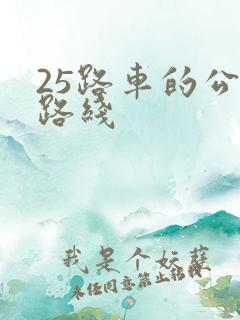 25路車的公
路綫
我是个妖蘖
未经同意禁止转载